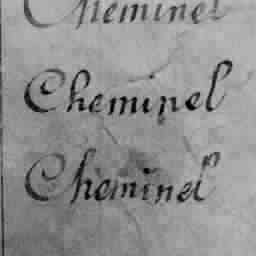 Cheminel
Cheminel
Cheminel